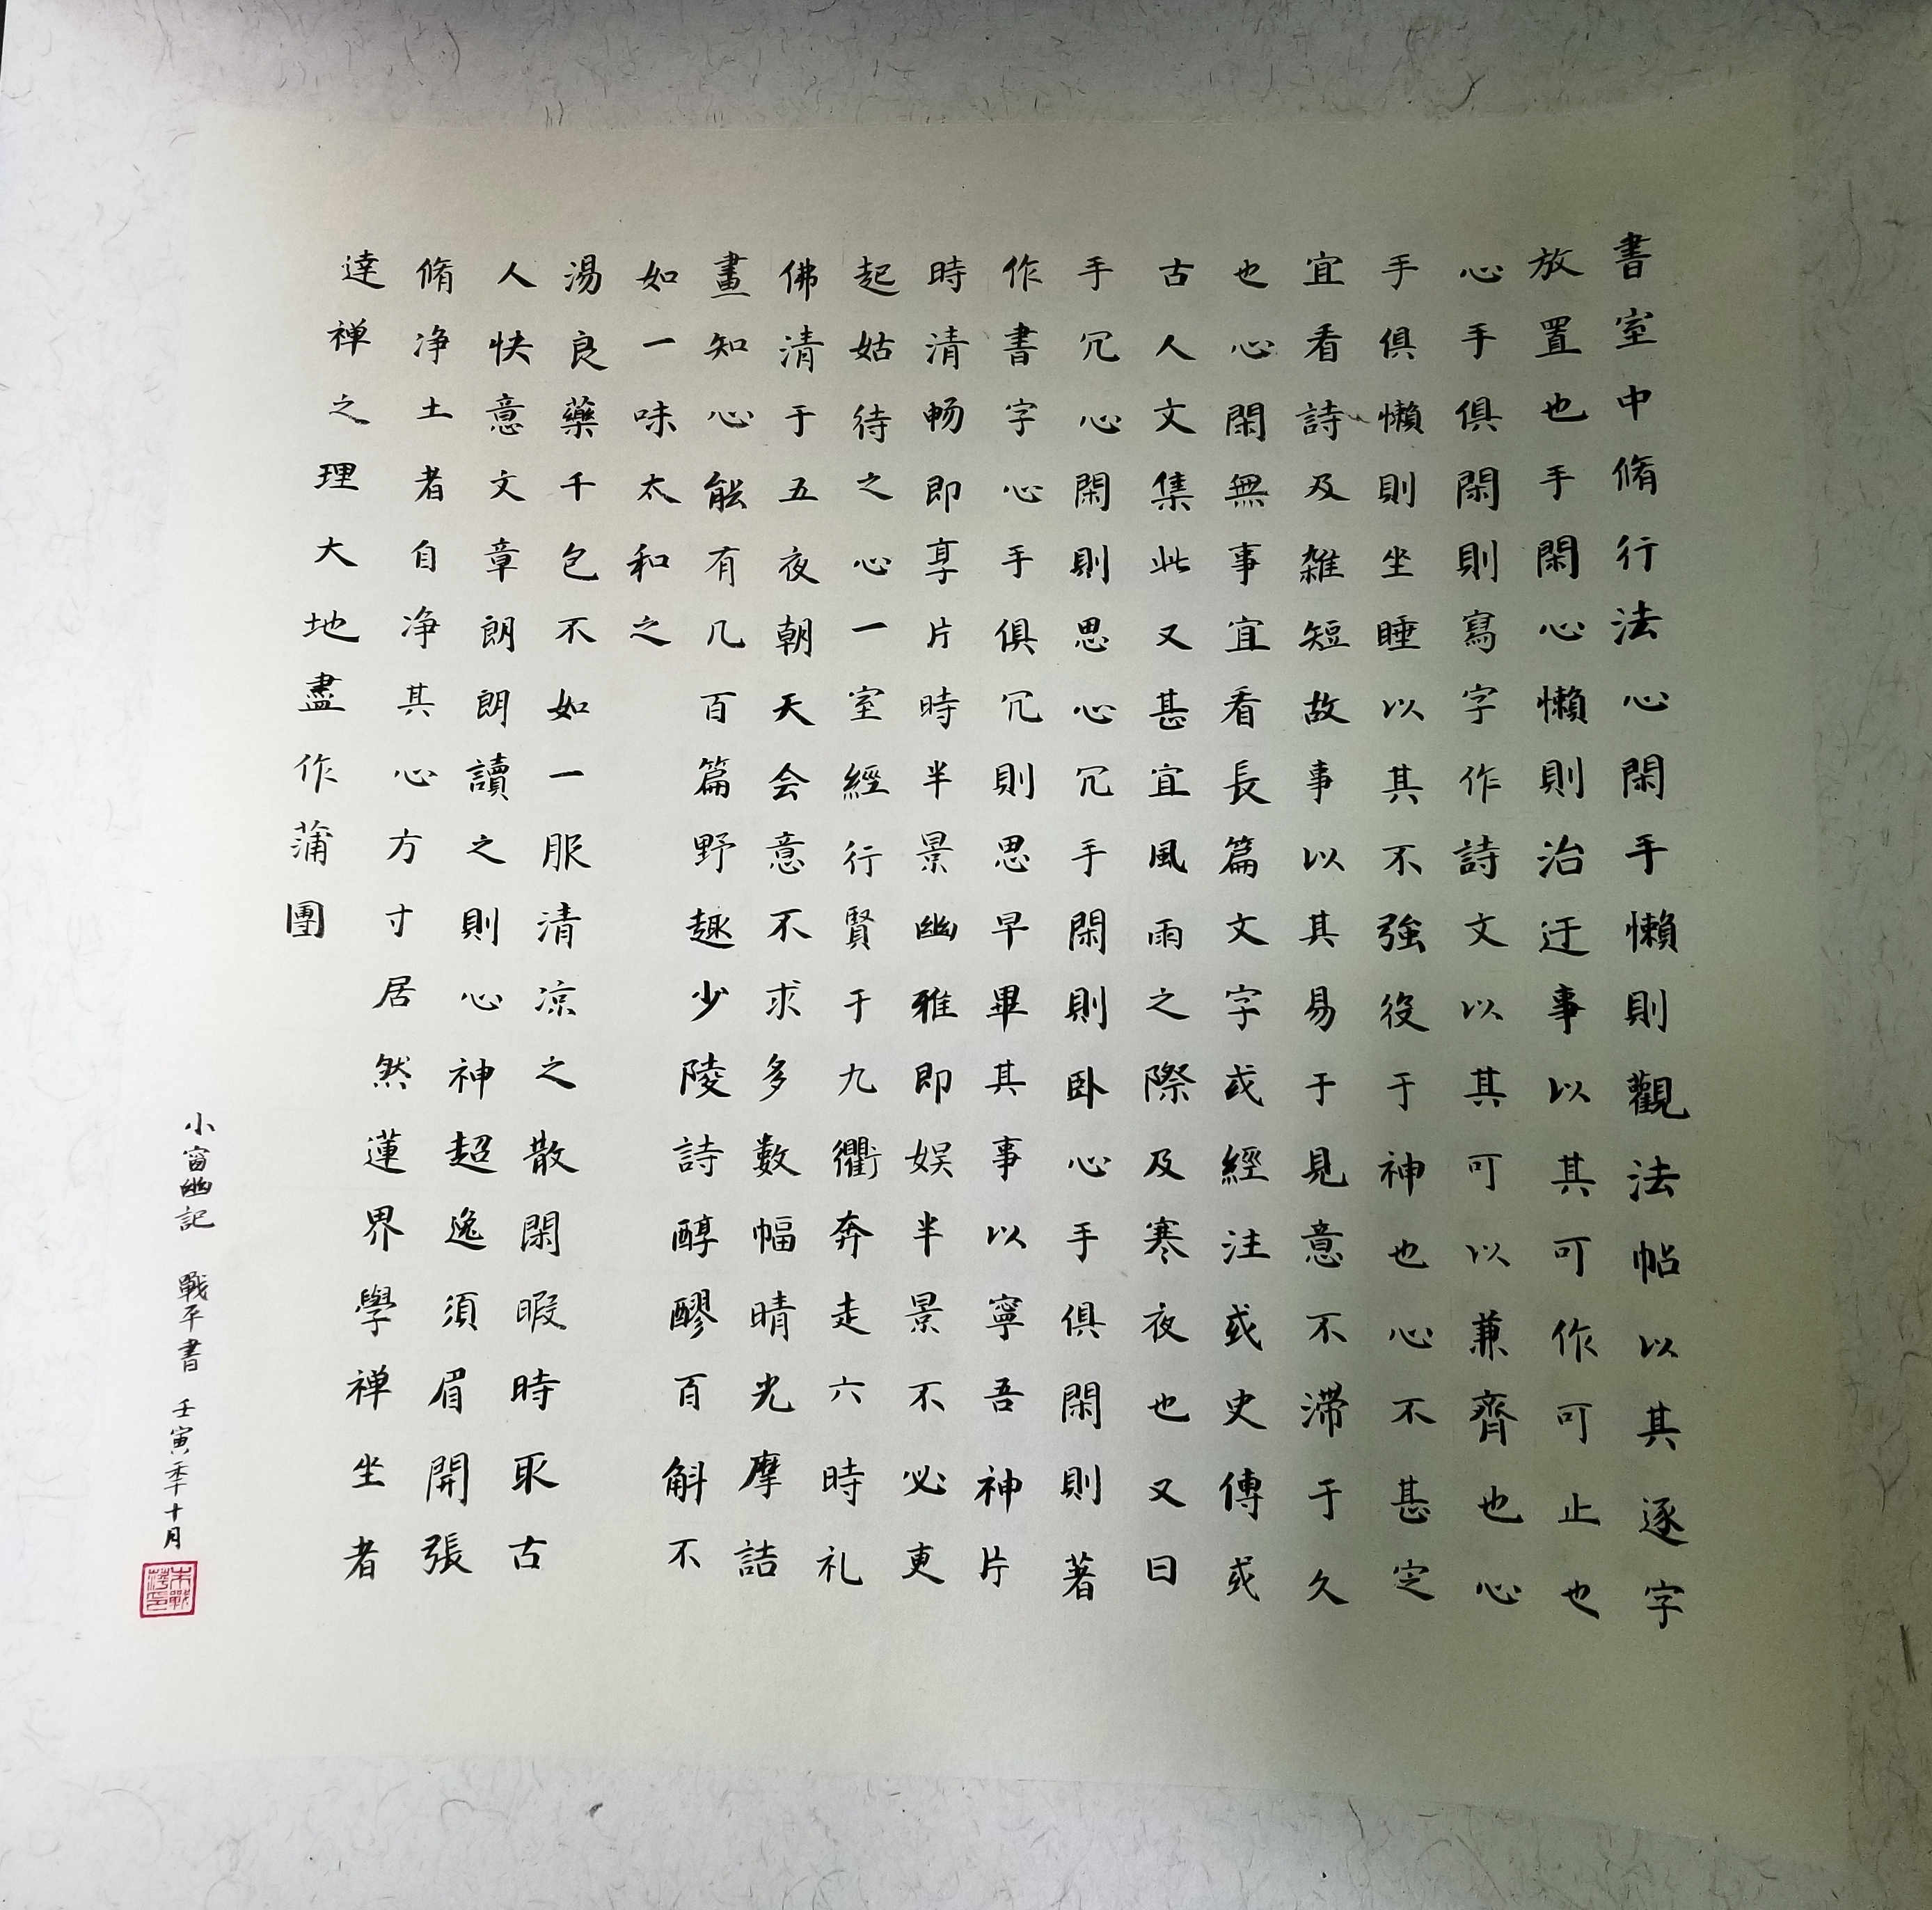 書室中脩行法心閑手懶則觀法帖以其逐字
放置也手閑心懶則治迂事以其可作可止也
心手俱閑則寫字作詩文以其可以兼齊也心
手俱懶則坐睡以其不強役于神也心不甚定
宜看詩及雜短故事以其易于見意不滯于久
也心閑無事宜看長篇文字或經注或史傳或
古人文集此又甚宜風雨之際及寒夜也又曰
手冗心閑則思心冗手閑則臥心手俱閑則著
作書字心手俱冗則思早畢其事以寧吾神片
時清畅即享片時半景幽雅即娱半景不必更
起姑待之心一室經行賢于九衢奔走六時礼
佛清于五夜朝天会意不求多數幅晴光摩詰
畫知心能有几百篇野趣少陵詩醇醪百斛不
如一味太和之
湯良藥千包不如一服清凉之散閑暇時取古
人快意文章朗朗讀之則心神超逸須眉開張
脩净土者自净其心方寸居然蓮界學禅坐者
達禅之理大地盡作蒲團
小窗幽記 戰平書 壬寅季十月